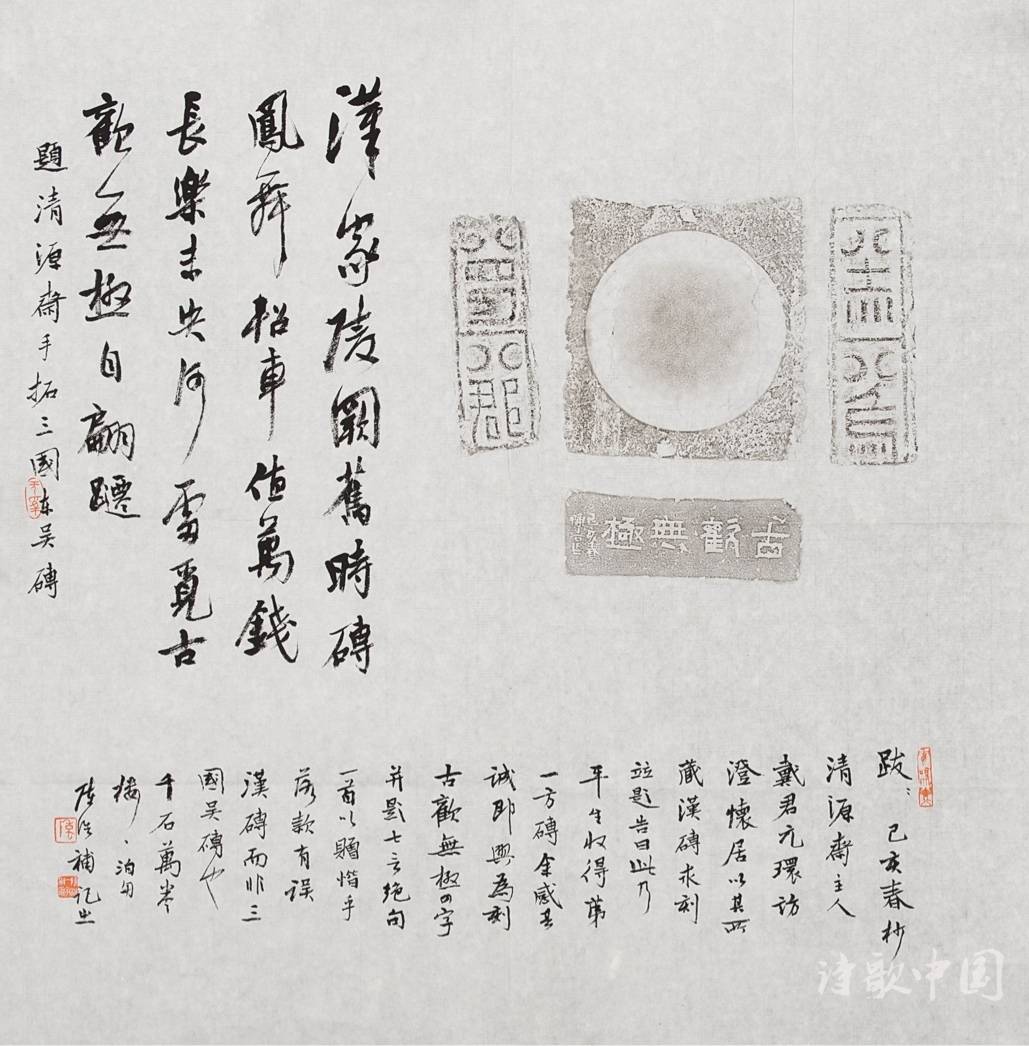 漢家陵闕舊時磚
鳳舞軺車值萬錢
長樂未央何處覓古
歡無極自翩躚
題清源齋手拓三國东吴磚
古歡無極
郡
跋：己亥春杪
清源齋主人
戴君元環訪
澄懷居以其所
藏漢磚求刻
並題告曰此乃
平生收得第
一方磚余感其
誠即興為刻
古歡無極四字
并題七言绝句
一首以贈惜乎
落款有误
漢磚而非三
國吴磚也
千石萬岑
樓、泊翁
補記之
诗歌中国